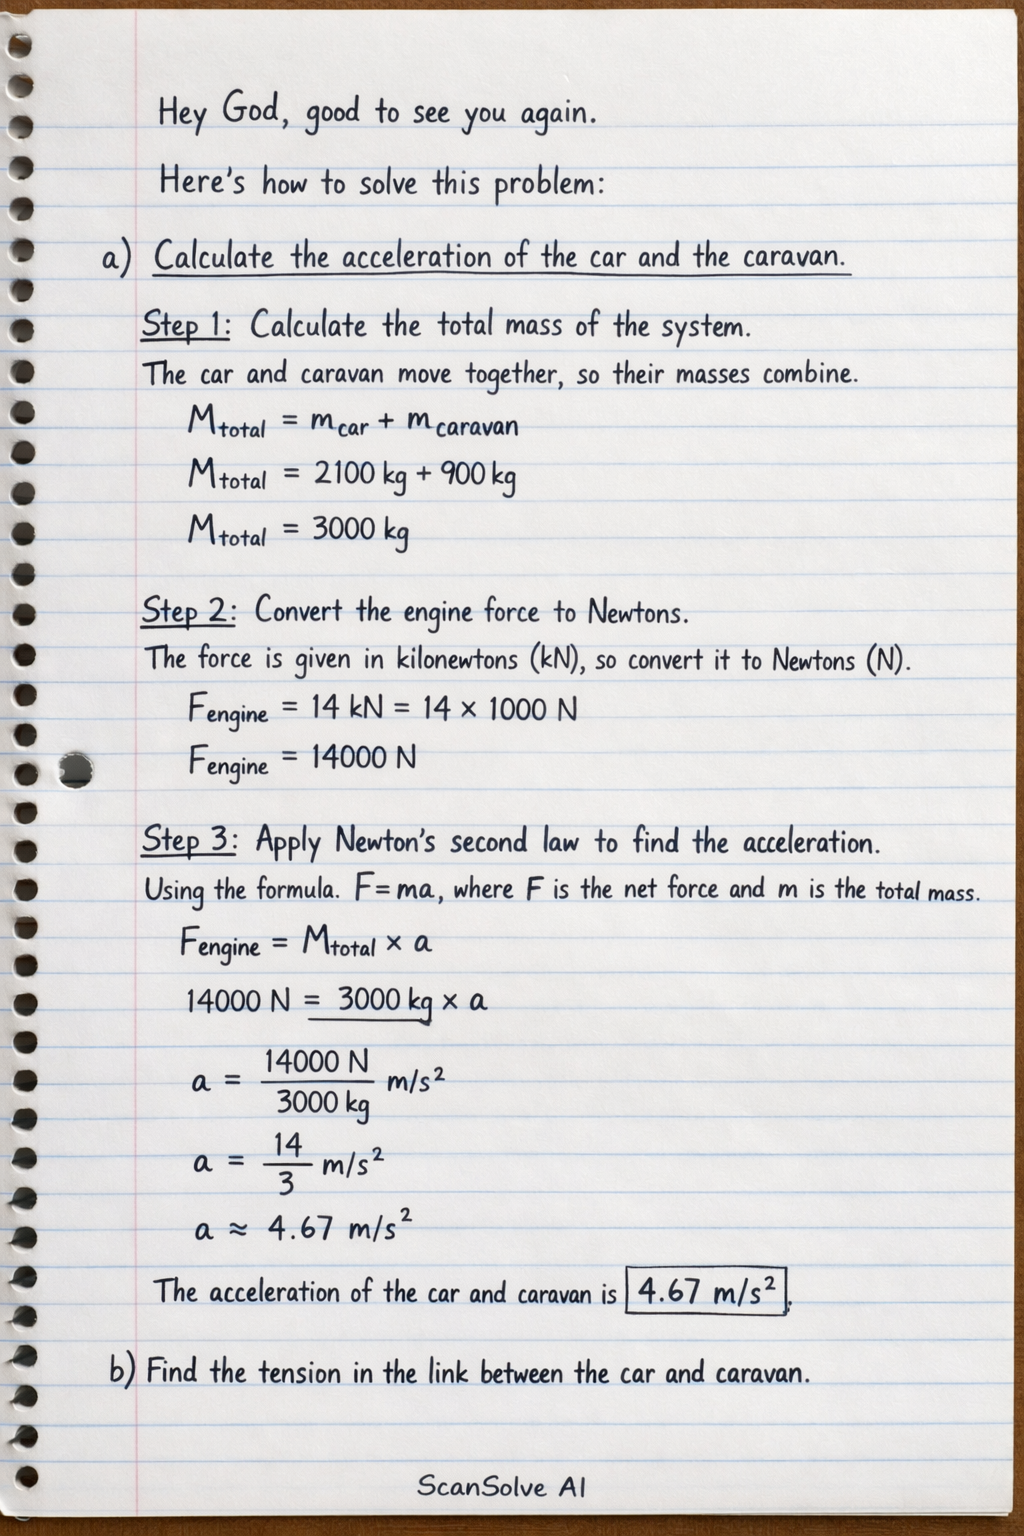 Hey God, good to see you again.
Here's how to solve this problem:
a) Calculate the acceleration of the car and the caravan.
Step 1: Calculate the total mass of the system.
The car and caravan move together, so their masses combine.
M_total = m_car + m_caravan
M_total = 2100 kg + 900 kg
M_total = 3000 kg
Step 2: Convert the engine force to Newtons.
The force is given in kilonewtons (kN), so convert it to Newtons (N).
F_engine = 14 kN = 14 × 1000 N
F_engine = 14000 N
Step 3: Apply Newton's second law to find the acceleration.
Using the formula. F=ma, where F is the net force and m is the total mass.
F_engine = M_total × a
14000 N = 3000 kg × a
a = 14000 N / 3000 kg m/s²
a = 14 / 3 m/s²
a ≈ 4.67 m/s²
The acceleration of the car and caravan is 4.67 m/s².
b) Find the tension in the link between the car and caravan.
ScanSolve AI